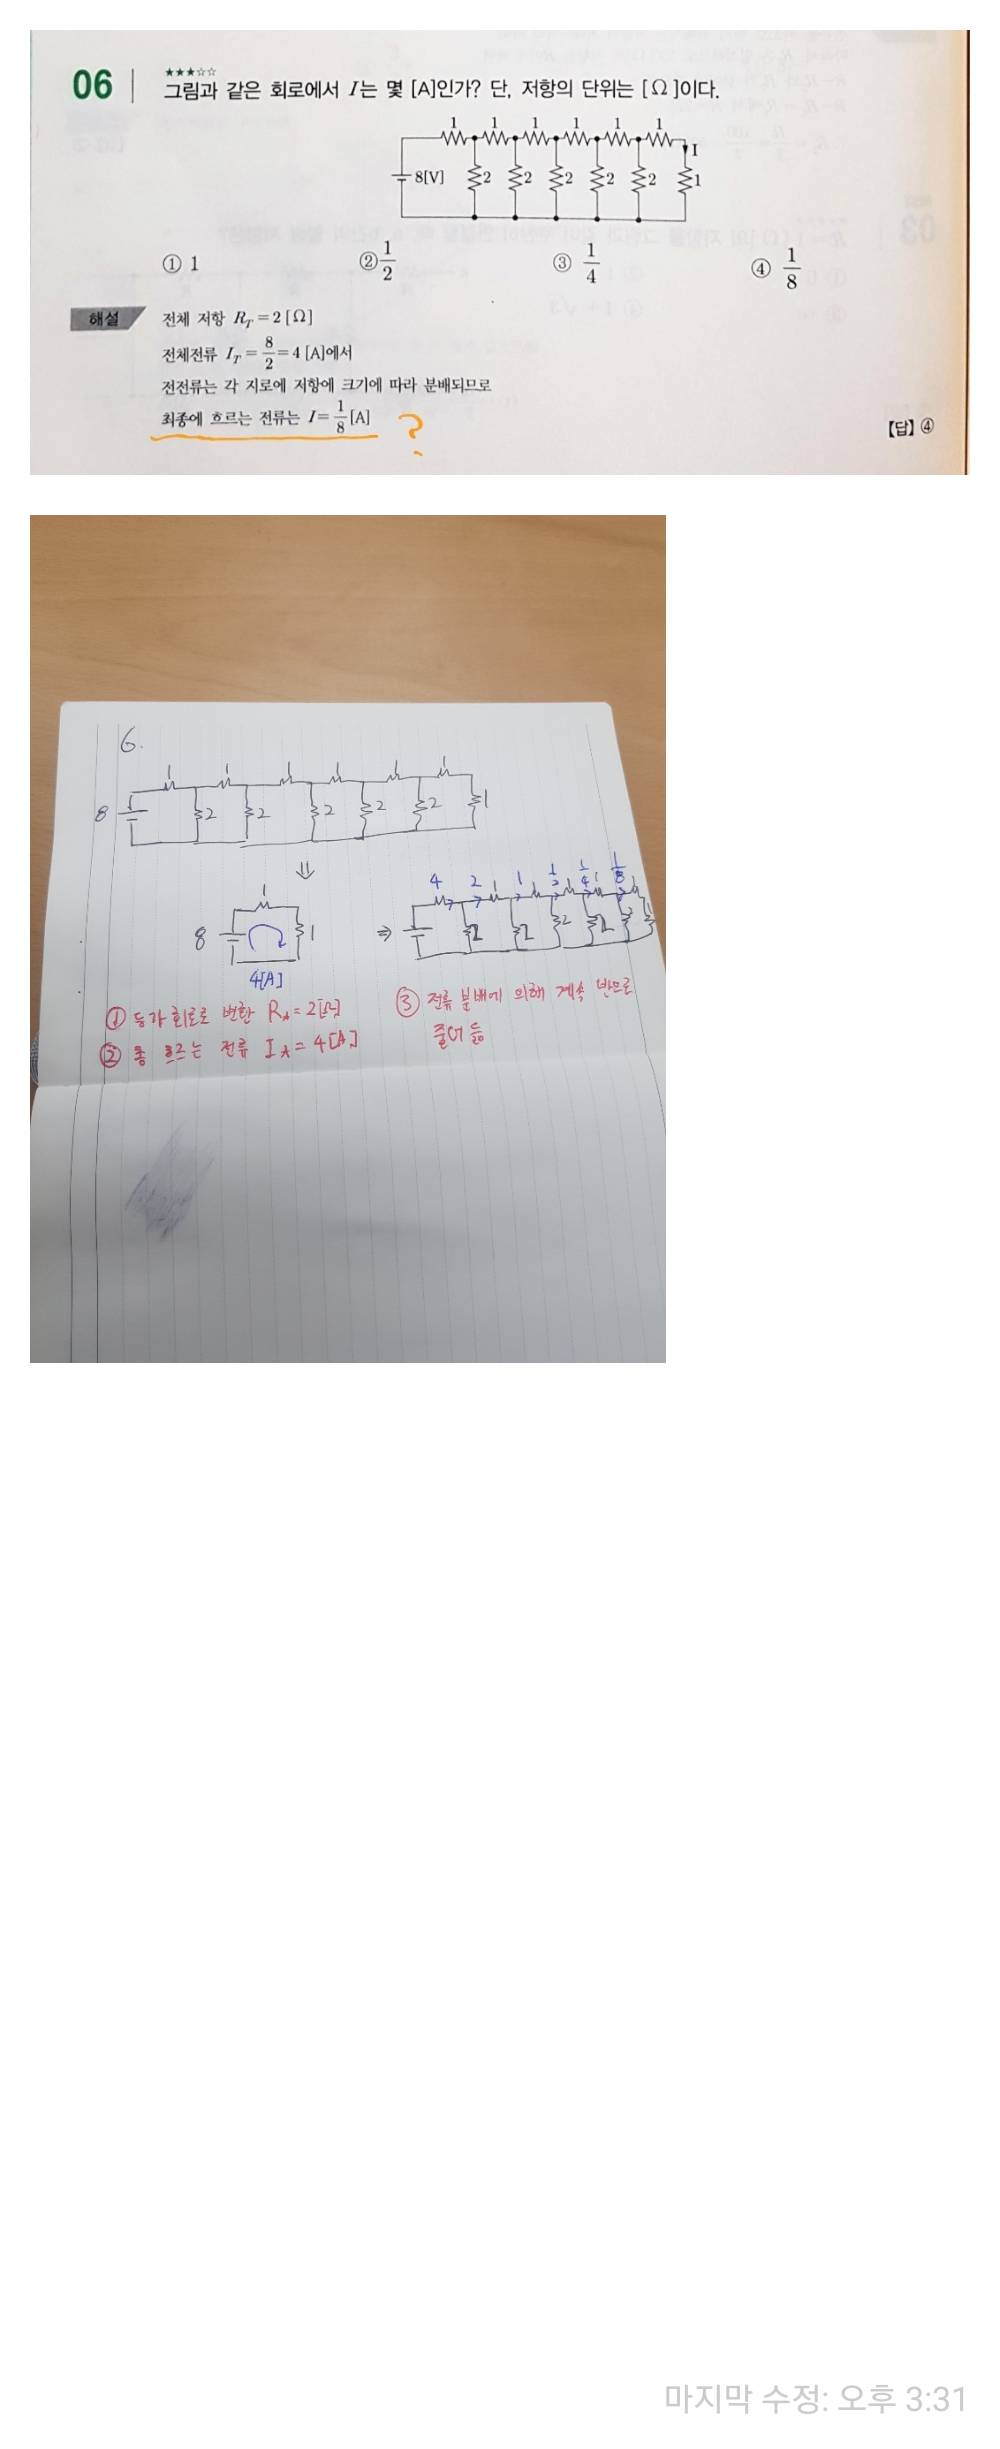 06
★★★☆☆
그림과 같은 회로에서 I는 몇 [A]인가? 단, 저항의 단위는 [Ω]이다.
1 1 1 1 1 1
I
8[V] 2 2 2 2 2 1
① 1 ② 1/2 ③ 1/4 ④ 1/8
해설
전체 저항 R_T = 2 [Ω]
전체전류 I_T = 8/2 = 4 [A]에서
전전류는 각 지로에 저항에 크기에 따라 분배되므로
최종에 흐르는 전류는 I = 1/8 [A] ?
【답】④
6.
1 1 1 1 1 1
8 2 2 2 2 2 1
⇓
4 2 1 1/2 1/4 1/8
1
8 1 ⇒
4[A]
① 등가 회로로 변환 R_A = 2[Ω]
② 총 흐르는 전류 I_A = 4[A]
③ 전류 분배에 의해 계속 반으로
줄어 듦
마지막 수정: 오후 3:31